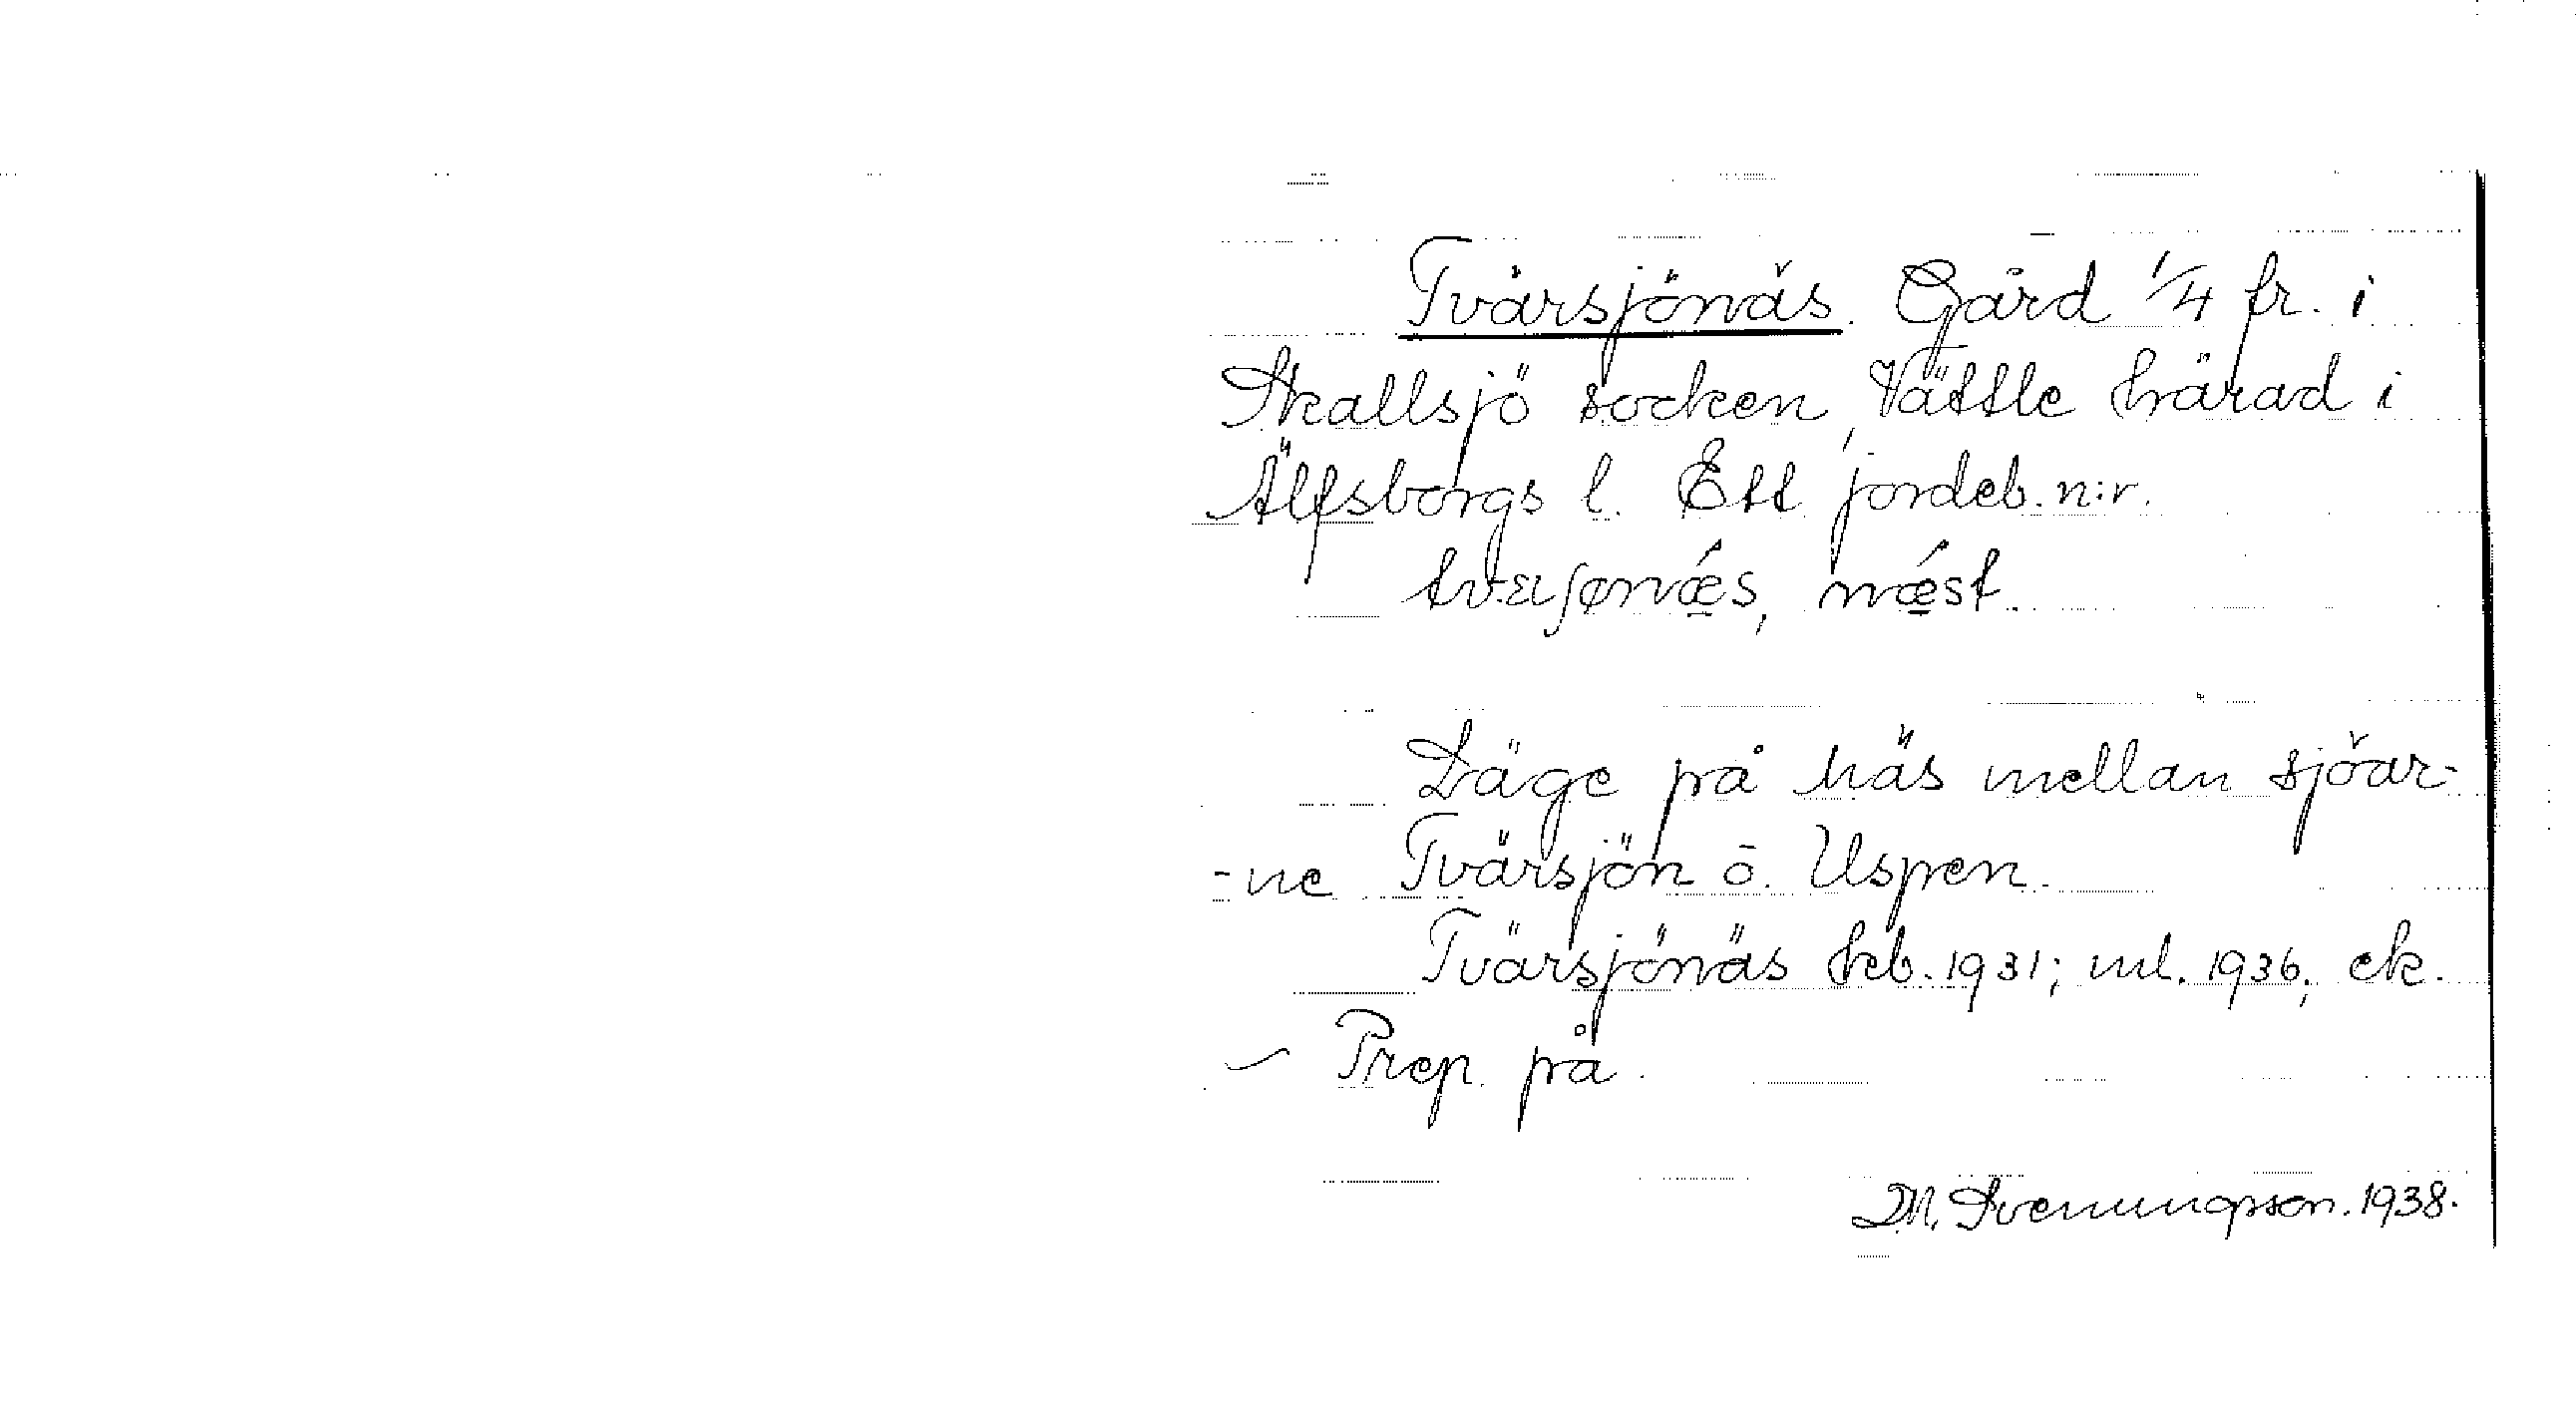 Tvärsjönäs. Gård 1/4 fr. i
Skallsjö socken, Vättle härad i
Älfsborgs l. Ett jordeb.n:r.
næst.
Läge på näs mellan sjöar-
-ne Tvärsjön o. Uspen.
Tvärsjönäs kb. 1931; ml. 1936; ek.
Prep. på.
M. Svenungsson. 1938.